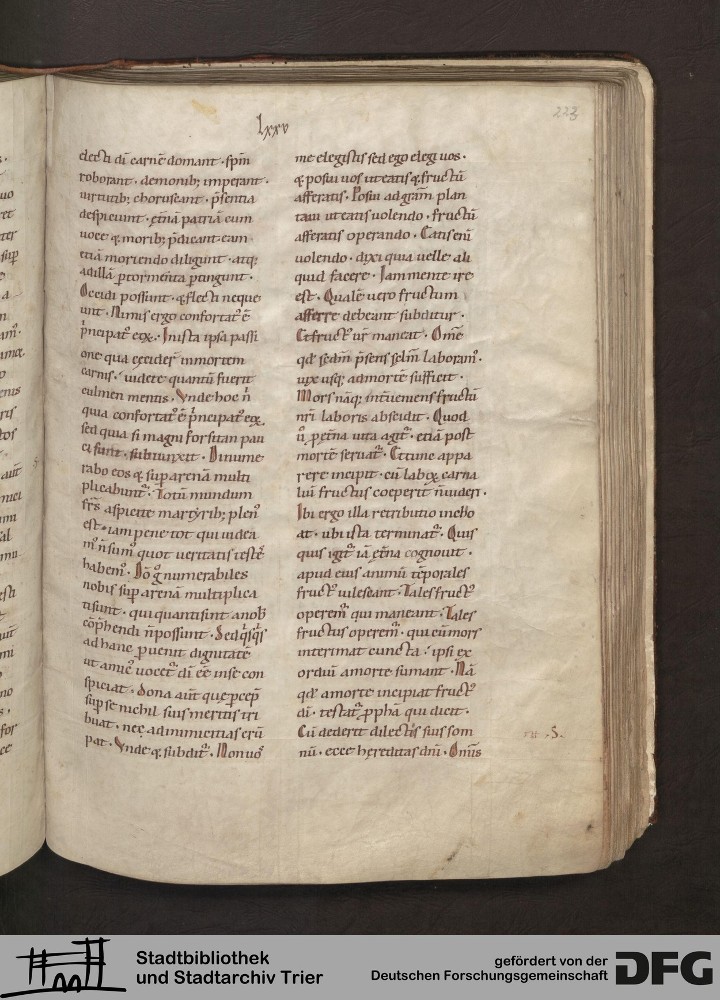 Lxxv
223
electi di carnē domant · spm̄
roborant · demonib; imperant ·
uirtutib; choruscant · p̄sentia
despiciunt · et̄nā patriā cum
uoce & morib; p̄dicant · eam
etiā moriendo diligunt · atq;
ad illā p tormenta ptingunt ·
Occidi possunt · & flecti neque
unt · Nimis ergo confortat' ē
p̄ncipat' eoꝝ · In ista ipsa passi
one qua ceciderˉ in mortem
carnis · uidete quantū fuerit
culmen mentis · Vnde hoc n̄
quia confortat' ē p̄ncipat' eoꝝ ·
sed quia si magni forsitan pau
ci sunt · subiunxit · Dinume
rabo eos & sup arenā multi
plicabunt' · Totū mundum
fr̄s aspicite martyrib; plen'
est · iam pene tot qui uidea
m' n̄ sum' quot ueritatis testes
habem' · Dō g̊ numerabiles
nobis sup arenā multiplica
ti sunt · qui quanti sint a nob̄
cōphendi n̄ possunt · Sed q̊sq̊s
ad hanc puenit dignitatē
ut amic' uocet' di ēē in se con
spiciat · dona aut̄ que pcep̄
sup se nichil suis meritis tri
buat · nec ad inimicitias erū
pat · Vnde & subdit' · Non uos
me elegistis sed ego elegi uos ·
& posui uos ut eatis & fructū
afferatis · Posui ad gram̄ plan
taui ut eatis uolendo · fructū
afferatis operando · Eatis eni
uolendo · dixi quia uelle ali
quid facere · Iam mente ire
est · Qualē uero fructum
afferre debeant subditur ·
Et fruct' ur̄ maneat · Om̄e
qd' sedm̄ p̄sens sc̄lm̄ laboram' ·
uix usq; ad mortē sufficit ·
Mors nāq; int̄ueniens fructū
nr̄i laboris abscidit · Quod
u' p et̄na uita agit' · etiā post
mortē seruat' · Et tunc appa
rere incipit · cū laboꝝ carna
liū fructus coeperit n̄ uideri ·
Ibi ergo illa retributio incho
at · ubi ista terminat' · Quis
quis igit' iā et̄na cognouit ·
apud eius animū tēporales
fruct' uilescant · Tales fruct'
operem' qui maneant · Tales
fructus operem' · qui cū mors
interimat cuncta · ipsi ex
ordiū a morte sumant · Nā
qd' a morte incipiat fruct'
di · testat' pphā qui dicit ·
Cū dederit dilectis suis som
nū · ecce hęreditas dn̄i · Omīs
S·
Stadtbibliothek
und Stadtarchiv Trier
gefördert von der
Deutschen Forschungsgemeinschaft
DFG